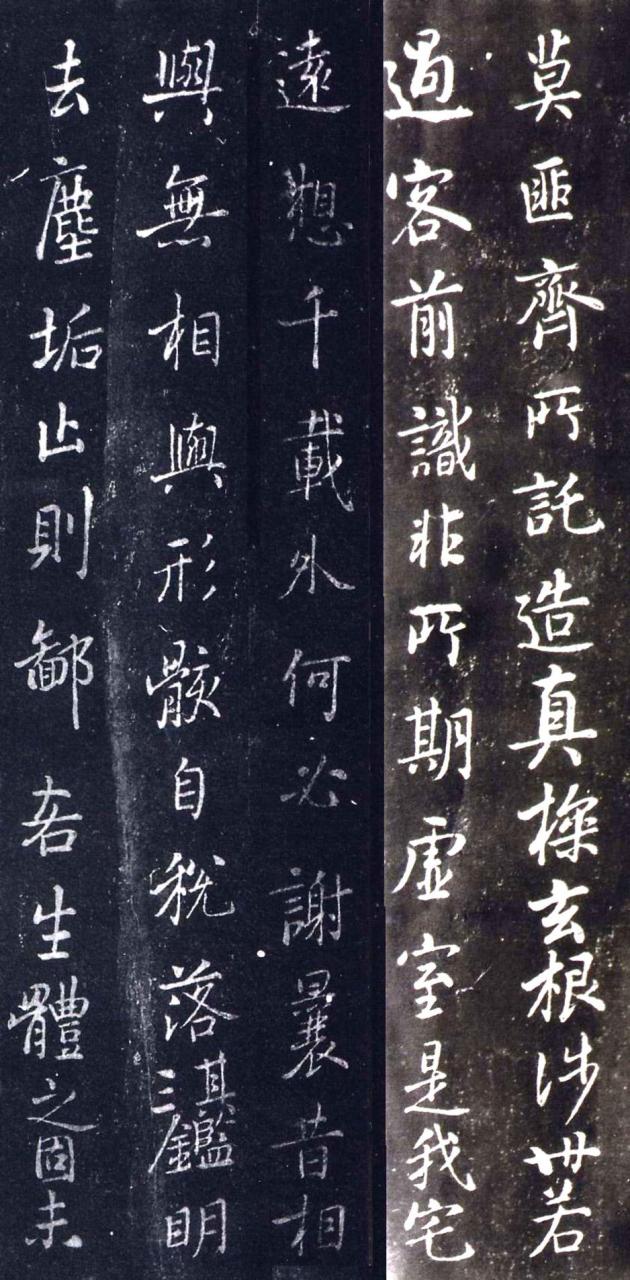 莫匪齊所託造真探玄根涉世若
過客前識非所期虛室是我宅
遠想千載外何必謝曩昔相
與無相與形骸自脫落其三鑑明
去塵垢止則鄙吝生體之固未